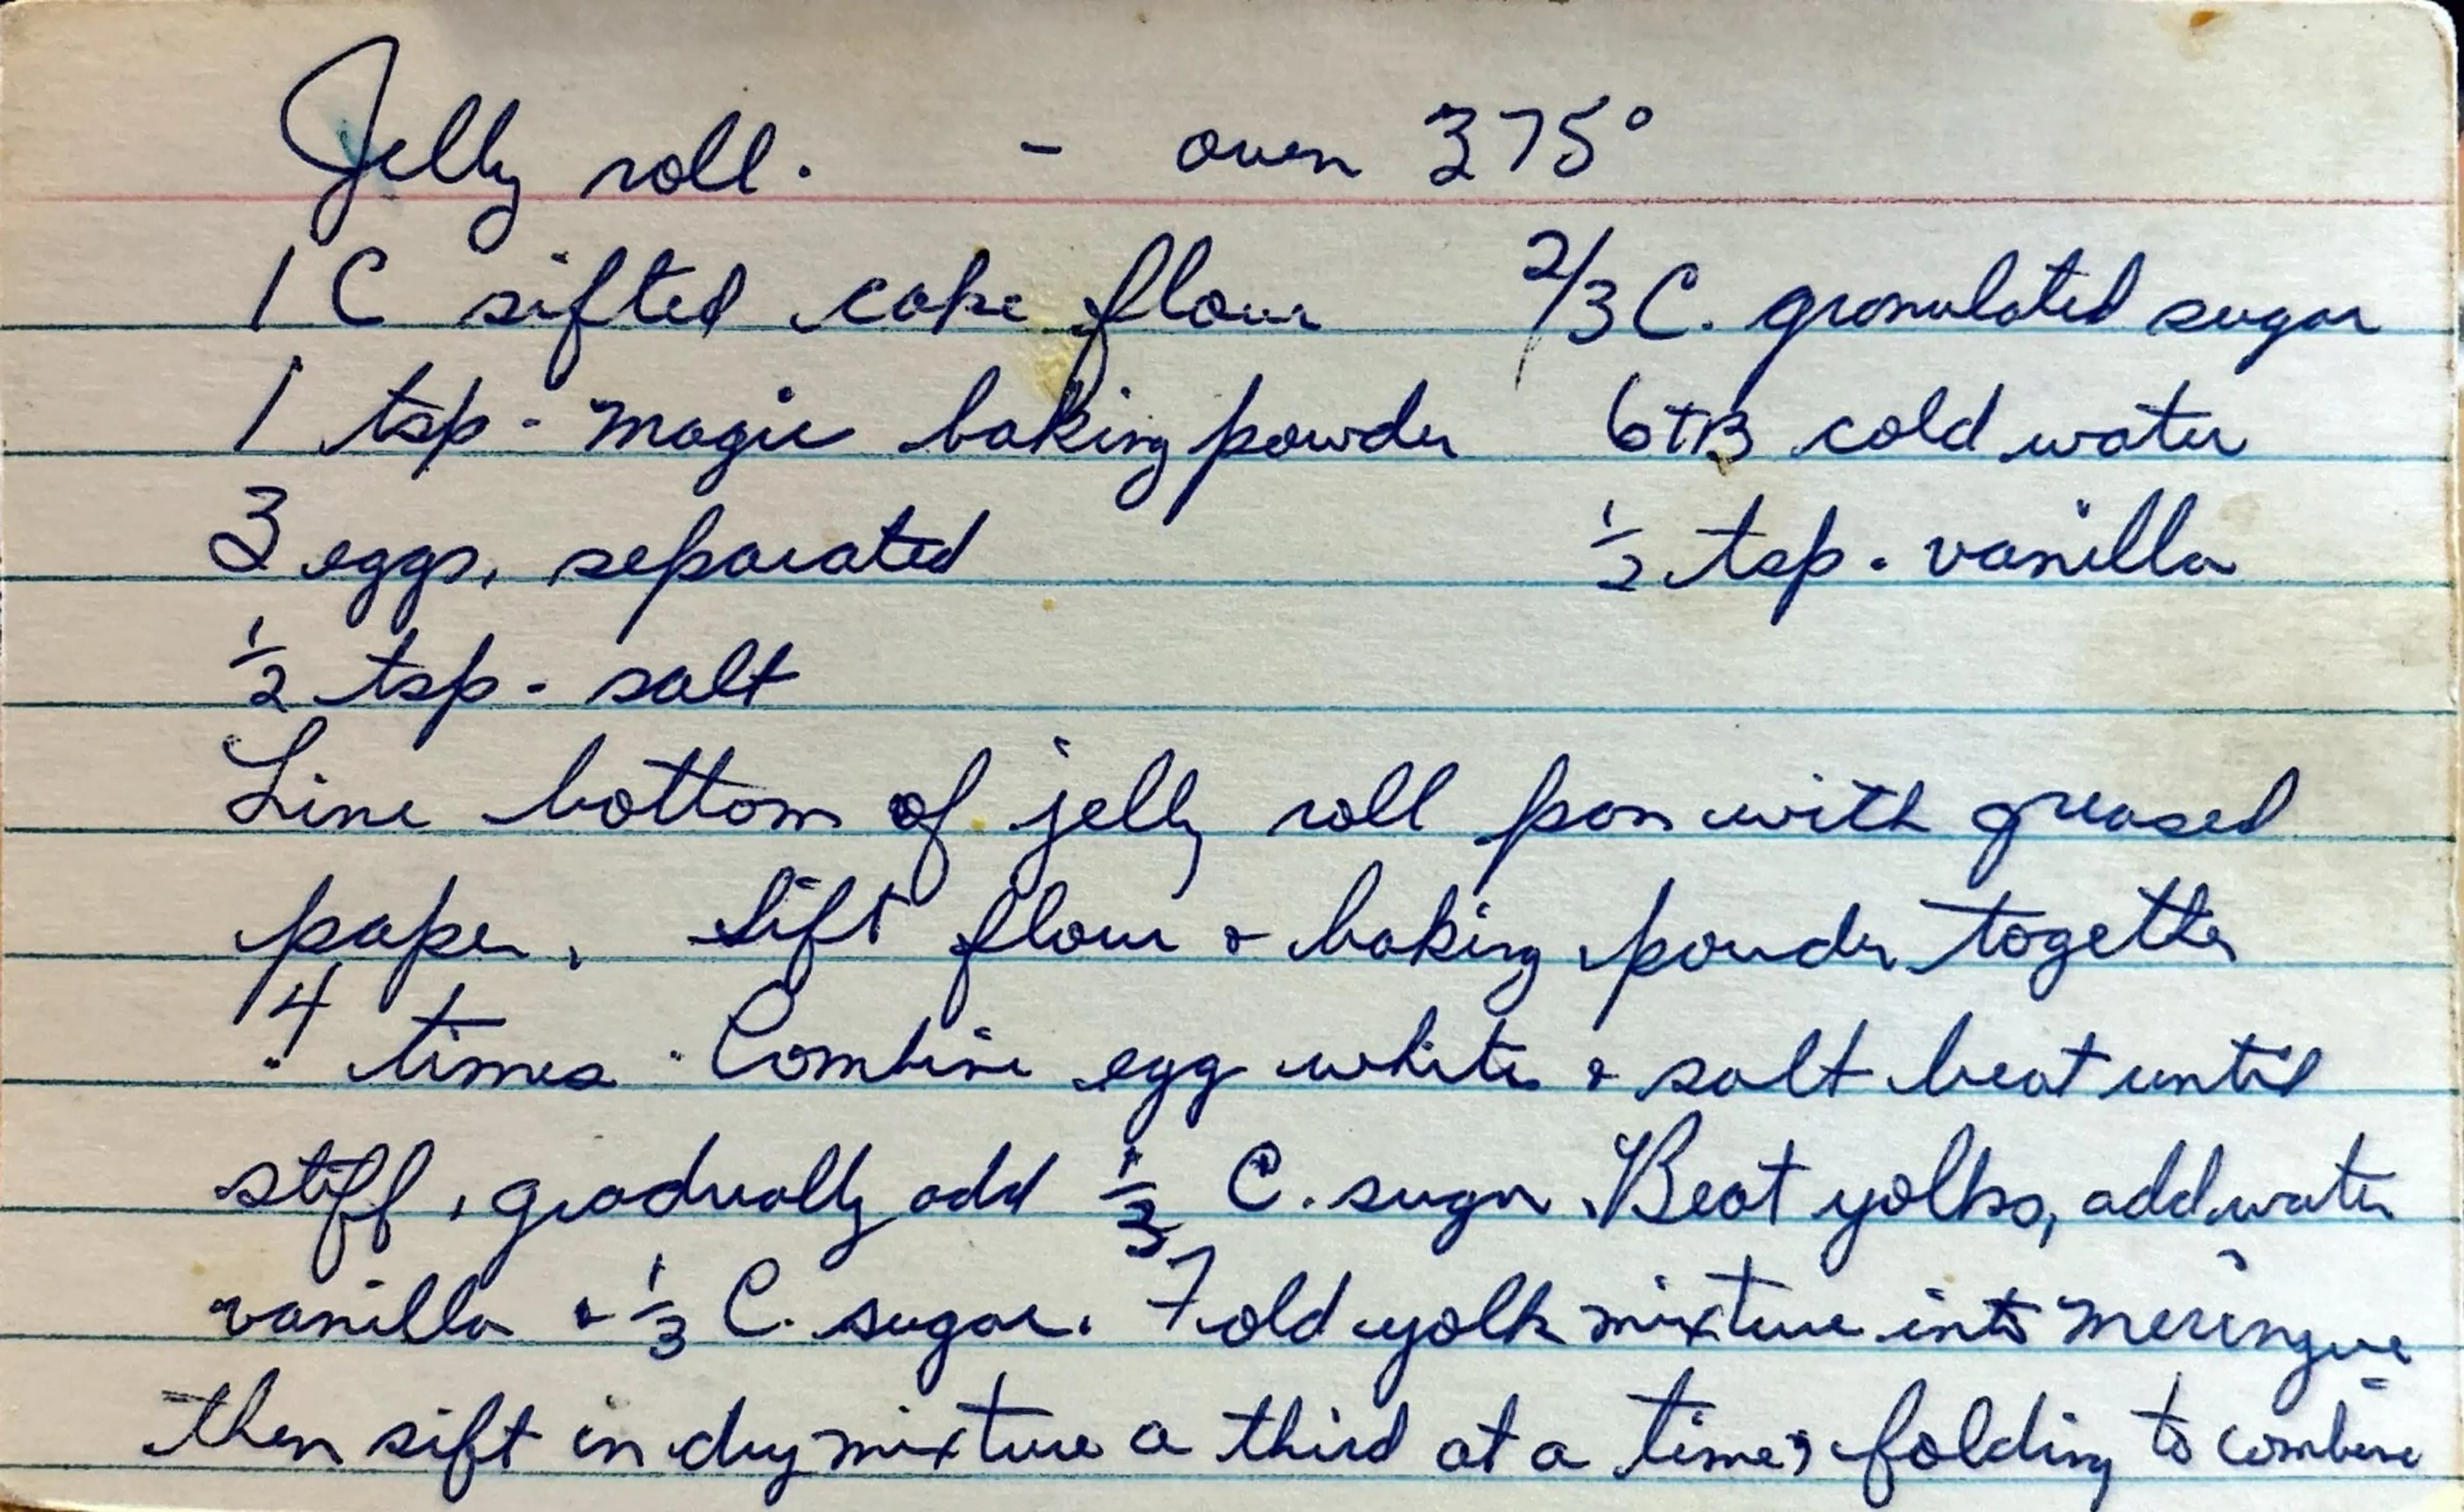 Jelly roll. - oven 375°
1 C sifted cake flour 2/3 C. granulated sugar
1 tsp. magic baking powder 6 TB cold water
3 eggs, separated 1/2 tsp. vanilla
1/2 tsp. salt
Line bottom of jelly roll pan with greased
paper. Sift flour & baking powder together
4 times. Combine egg white & salt beat until
stiff, gradually add 1/3 C. sugar. Beat yolks, add water
vanilla & 1/3 C. sugar. Fold yolk mixture into meringue
then sift in dry mixture a third at a time, folding to combine